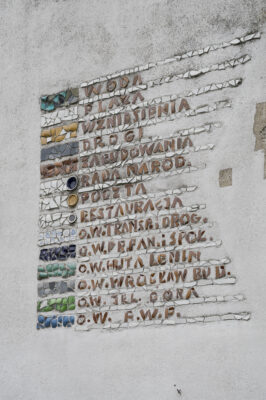 WODA
PLAŻA
WZNIESIENIA
DROGI
ZABUDOWANIA
RADA NAROD.
POCZTA
RESTAURACJA
O.W. TRANSP. DROG.
O.W. HUTA LENIN
O.W. WROCŁAW BUD.
O.W. JEL. GÓRA
O.W. F.W.P.